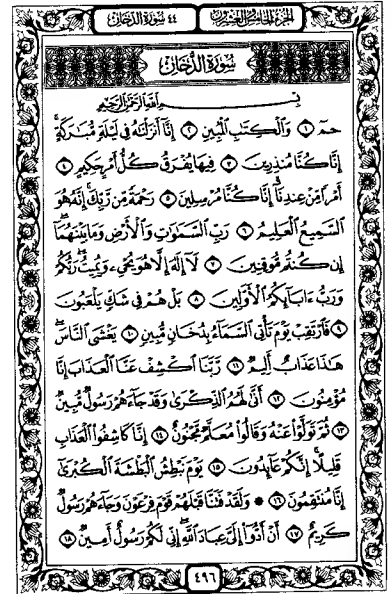 الجزء الخامس والعشرون
٤٤ سورة الدخان
سُورَةُ الدُّخَانِ
بِسْمِ ٱللَّهِ ٱلرَّحْمَٰنِ ٱلرَّحِيمِ
حمٓ ۝١ وَٱلْكِتَٰبِ ٱلْمُبِينِ ۝٢ إِنَّآ أَنزَلْنَٰهُ فِى لَيْلَةٍ مُّبَٰرَكَةٍ ۚ
إِنَّا كُنَّا مُنذِرِينَ ۝٣ فِيهَا يُفْرَقُ كُلُّ أَمْرٍ حَكِيمٍ ۝٤
أَمْرًا مِّنْ عِندِنَآ ۚ إِنَّا كُنَّا مُرْسِلِينَ ۝٥ رَحْمَةً مِّن رَّبِّكَ ۚ إِنَّهُۥ هُوَ
ٱلسَّمِيعُ ٱلْعَلِيمُ ۝٦ رَبِّ ٱلسَّمَٰوَٰتِ وَٱلْأَرْضِ وَمَا بَيْنَهُمَآ ۖ
إِن كُنتُم مُّوقِنِينَ ۝٧ لَآ إِلَٰهَ إِلَّا هُوَ يُحْىِۦ وَيُمِيتُ ۖ رَبُّكُمْ
وَرَبُّ ءَابَآئِكُمُ ٱلْأَوَّلِينَ ۝٨ بَلْ هُمْ فِى شَكٍّ يَلْعَبُونَ
۝٩ فَٱرْتَقِبْ يَوْمَ تَأْتِى ٱلسَّمَآءُ بِدُخَانٍ مُّبِينٍ ۝١٠ يَغْشَى ٱلنَّاسَ ۖ
هَٰذَا عَذَابٌ أَلِيمٌ ۝١١ رَّبَّنَا ٱكْشِفْ عَنَّا ٱلْعَذَابَ إِنَّا
مُؤْمِنُونَ ۝١٢ أَنَّىٰ لَهُمُ ٱلذِّكْرَىٰ وَقَدْ جَآءَهُمْ رَسُولٌ مُّبِينٌ
۝١٣ ثُمَّ تَوَلَّوْا۟ عَنْهُ وَقَالُوا۟ مُعَلَّمٌ مَّجْنُونٌ ۝١٤ إِنَّا كَاشِفُوا۟ ٱلْعَذَابِ
قَلِيلًا ۚ إِنَّكُمْ عَآئِدُونَ ۝١٥ يَوْمَ نَبْطِشُ ٱلْبَطْشَةَ ٱلْكُبْرَىٰٓ
إِنَّا مُنتَقِمُونَ ۝١٦ ۞ وَلَقَدْ فَتَنَّا قَبْلَهُمْ قَوْمَ فِرْعَوْنَ وَجَآءَهُمْ رَسُولٌ
كَرِيمٌ ۝١٧ أَنْ أَدُّوٓا۟ إِلَىَّ عِبَادَ ٱللَّهِ ۖ إِنِّى لَكُمْ رَسُولٌ أَمِينٌ ۝١٨
٤٩٦